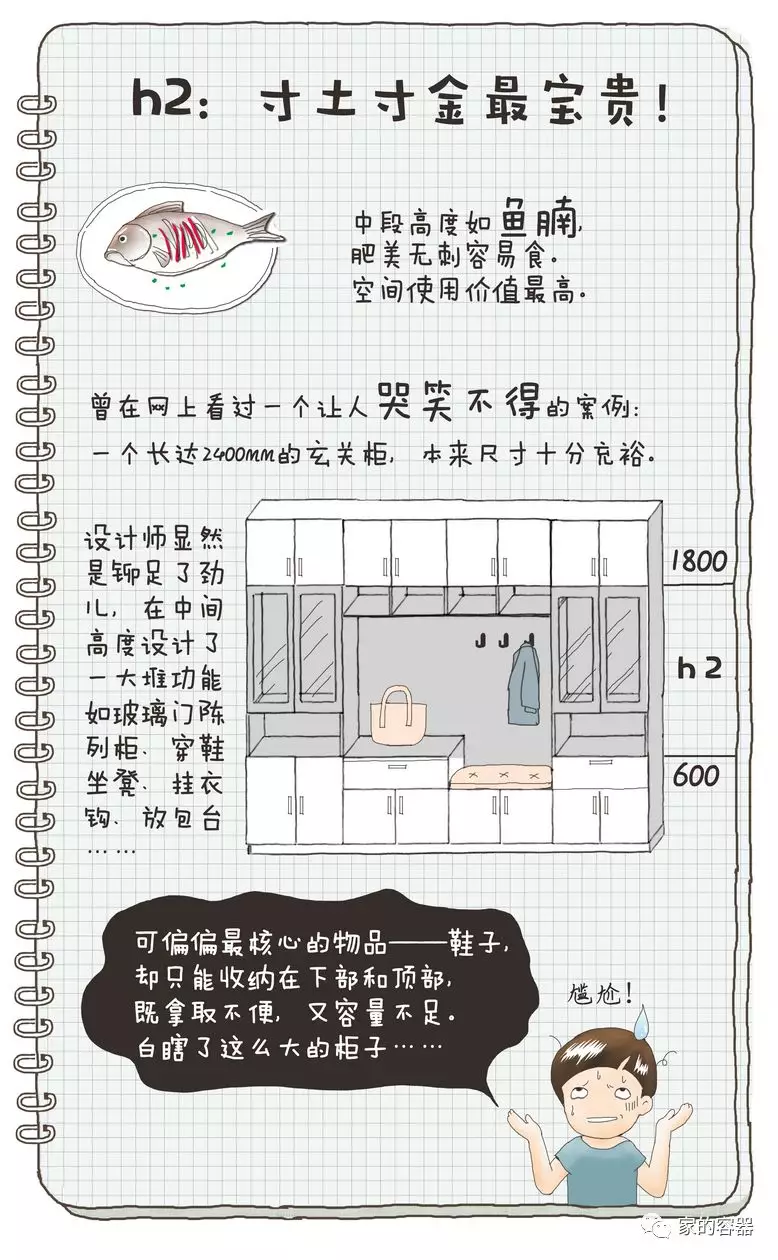 h2：寸土寸金最宝贵！
中段高度如鱼腩，
肥美无刺容易食。
空间使用价值最高。
曾在网上看过一个让人哭笑不得的案例：
一个长达2400mm的玄关柜，本来尺寸十分充裕。
设计师显然
是铆足了劲
儿，在中间
高度设计了
一大堆功能
如玻璃门陈
列柜、穿鞋
坐凳、挂衣
钩、放包台
……
1800
h2
600
可偏偏最核心的物品——鞋子，
却只能收纳在下部和顶部，
既拿取不便，又容量不足。
白瞎了这么大的柜子……
尴尬！
家的容器